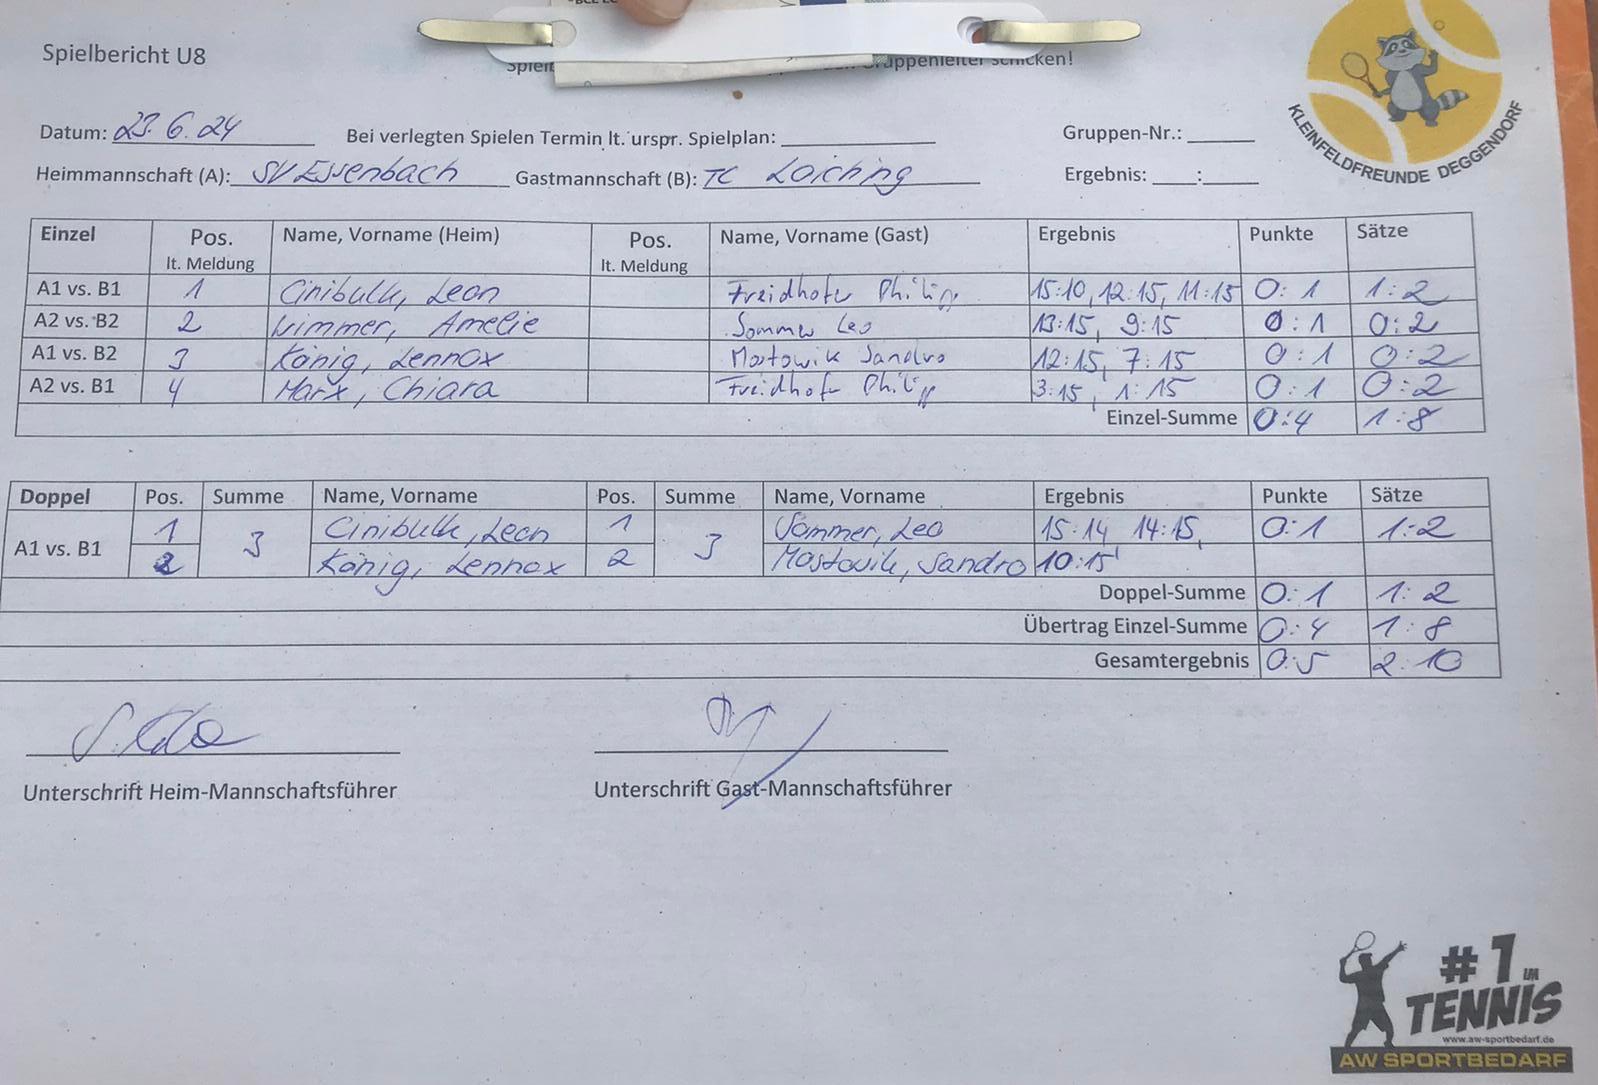 Spielbericht U8
Gruppenleiter schicken!
KLEINFELDFREUNDE DEGGENDORF
Datum: 23.6.24 Bei verlegten Spielen Termin lt. urspr. Spielplan: Gruppen-Nr.:
Heimmannschaft (A): SV Essenbach Gastmannschaft (B): TC Loiching Ergebnis: :
Einzel Pos. lt. Meldung Name, Vorname (Heim) Pos. lt. Meldung Name, Vorname (Gast) Ergebnis Punkte Sätze
A1 vs. B1 1 Cinibulk, Leon Freidhofer Philipp 15:10, 12:15, 11:15 0:1 1:2
A2 vs. B2 2 Wimmer, Amelie Sommer Leo 13:15, 9:15 0:1 0:2
A1 vs. B2 3 König, Lennox Mostowik Sandro 12:15, 7:15 0:1 0:2
A2 vs. B1 4 Marx, Chiara Freidhofer Philipp 3:15, 1:15 0:1 0:2
Einzel-Summe 0:4 1:8
Doppel Pos. Summe Name, Vorname Pos. Summe Name, Vorname Ergebnis Punkte Sätze
A1 vs. B1 1 3 Cinibulk, Leon 1 3 Sommer, Leo 15:14 14:15, 0:1 1:2
2 König, Lennox 2 Mostowik, Sandro 10:15
Doppel-Summe 0:1 1:2
Übertrag Einzel-Summe 0:4 1:8
Gesamtergebnis 0:5 2:10
Unterschrift Heim-Mannschaftsführer Unterschrift Gast-Mannschaftsführer
#1 IM
TENNIS
www.aw-sportbedarf.de
AW SPORTBEDARF